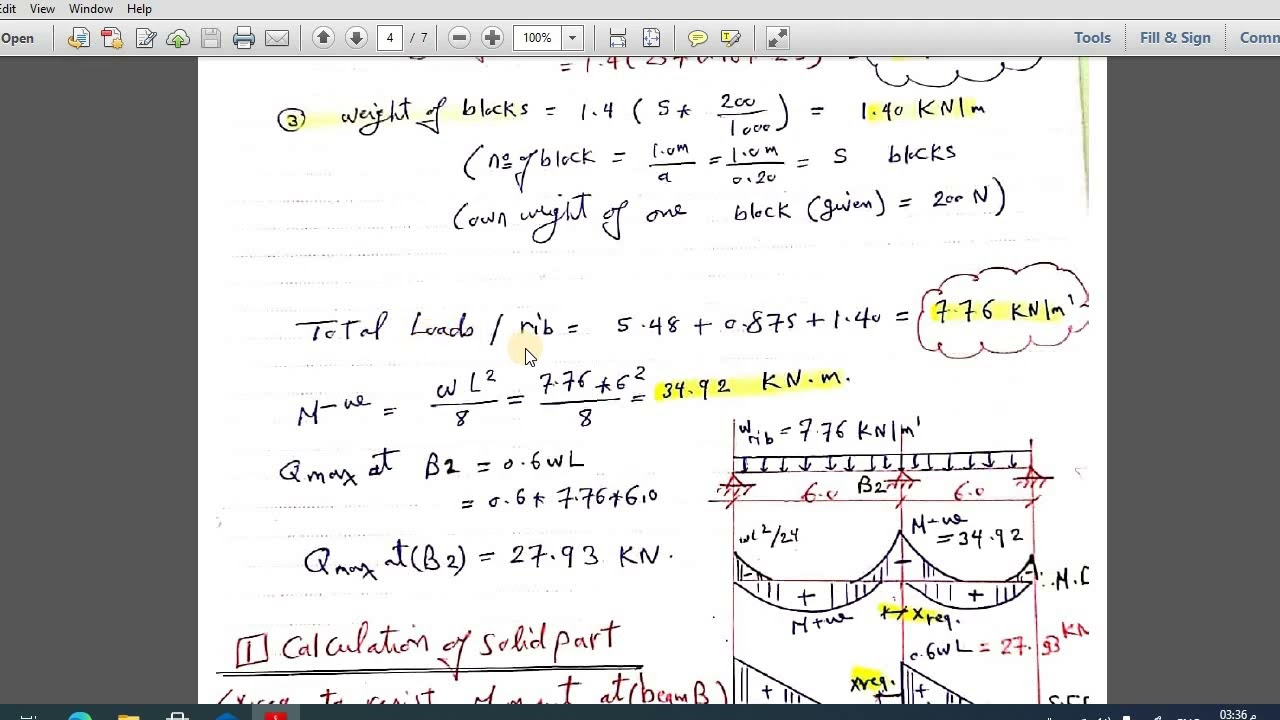 Edit View Window Help
Open 4 / 7 100% Tools Fill & Sign Comm
= 1.4 (
③ weight of blocks = 1.4 ( 5* 200/1000 ) = 1.40 KN/m
( no of block = 1.0m/a = 1.0m/0.20 = 5 blocks
(own weight of one block (given) = 200 N)
Total Loads / rib = 5.48 + 0.875 + 1.40 = 7.76 KN/m'
M-ve = wL²/8 = 7.76*6²/8 = 34.92 KN.m.
w rib = 7.76 KN/m'
Qmax at B2 = 0.6wL
= 0.6* 7.76*6.0
6.0 B2 6.0
Qmax at(B2) = 27.93 KN.
wL²/24 M-ve = 34.92
- - - M.D
+ +
M+ve Xreq.
1 Calculation of solid part
0.6wL = 27.93 KN
Xreq.
+ +
(Xreq to resist Moment at(beam B)
03:36